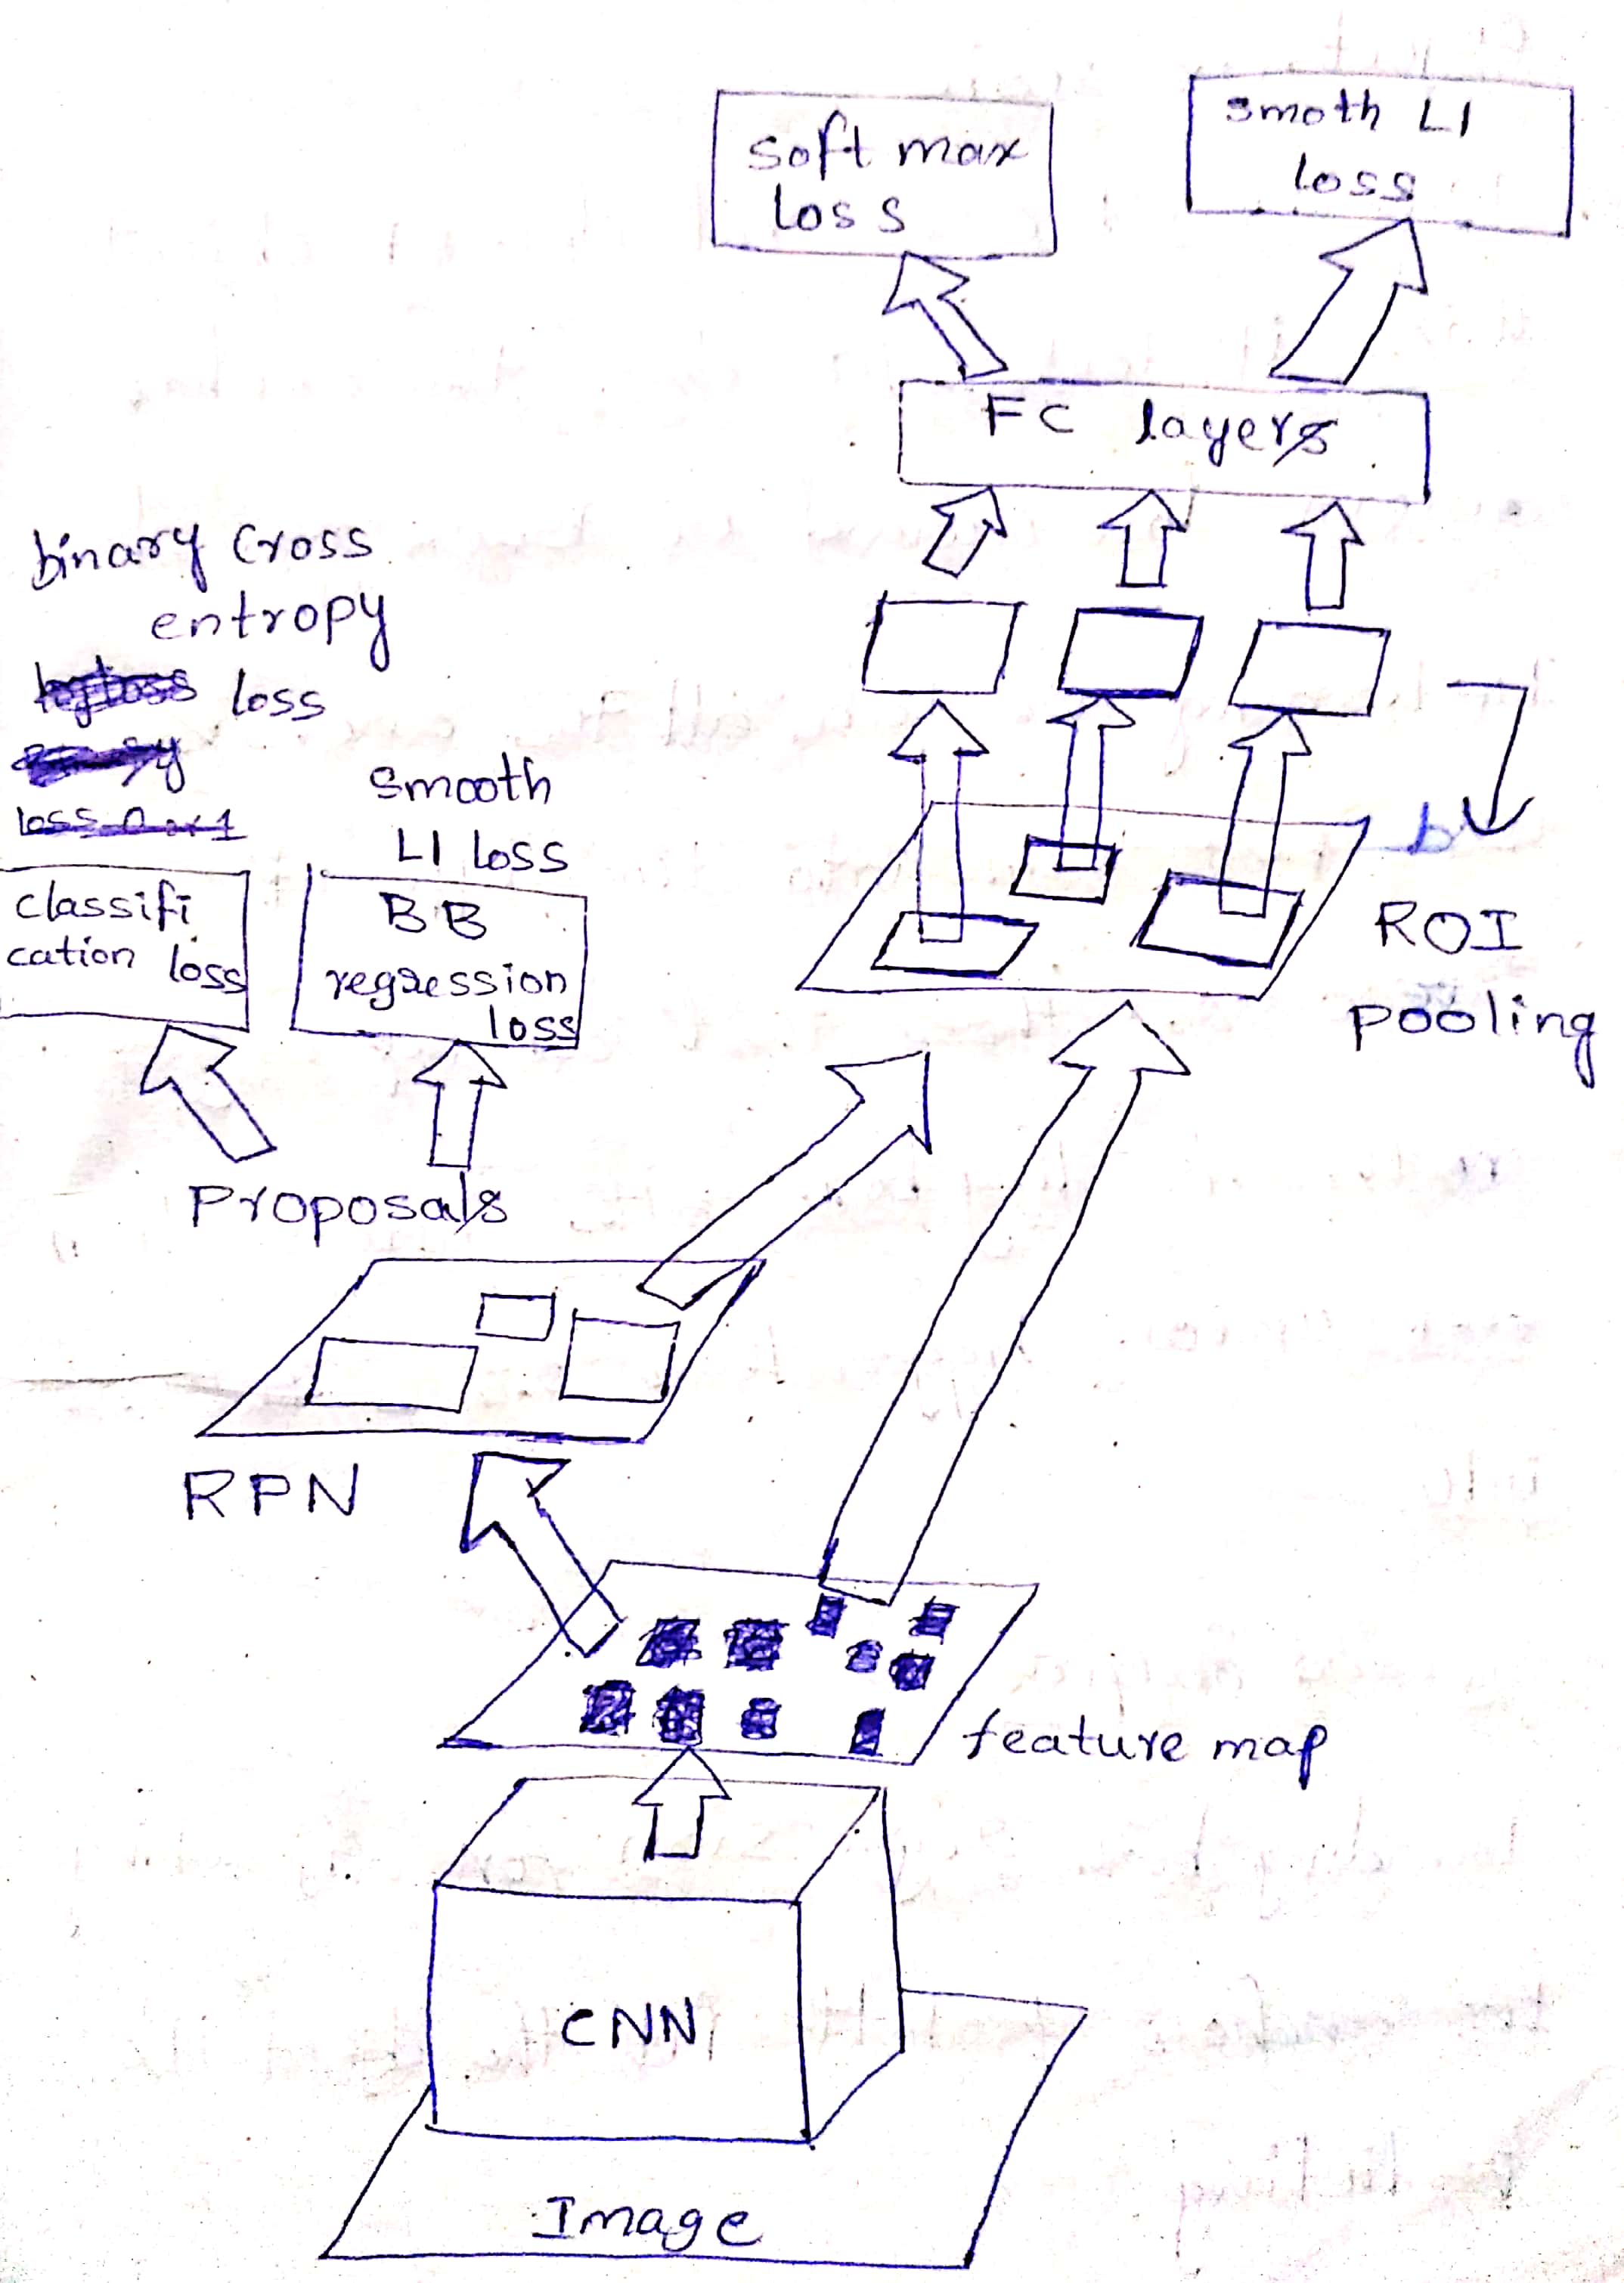 soft max
loss
smoth L1
loss
FC layers
binary cross
entropy
loss
smooth
L1 loss
classifi
cation loss
BB
regression
loss
ROI
pooling
proposals
RPN
feature map
CNN
Image